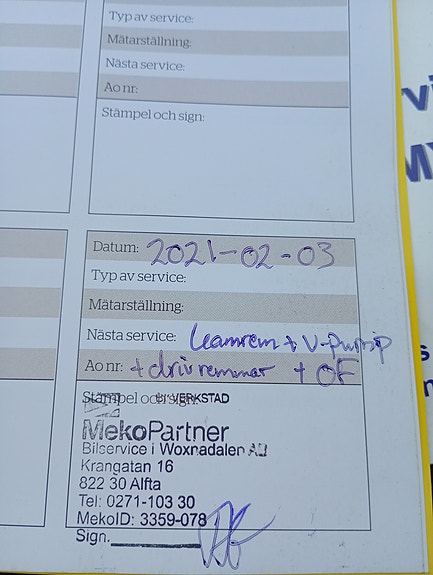 Typ av service:
Mätarställning:
Nästa service:
Ao nr:
Stämpel och sign:
Datum: 2021-02-03
Typ av service:
Mätarställning:
Nästa service: kamrem + V-pump
Ao nr: + drivremmar + OF
Stämpel och sign:
VERKSTAD
MekoPartner
Bilservice i Woxnadalen AB
Krangatan 16
822 30 Alfta
Tel: 0271-103 30
MekoID: 3359-078
Sign.